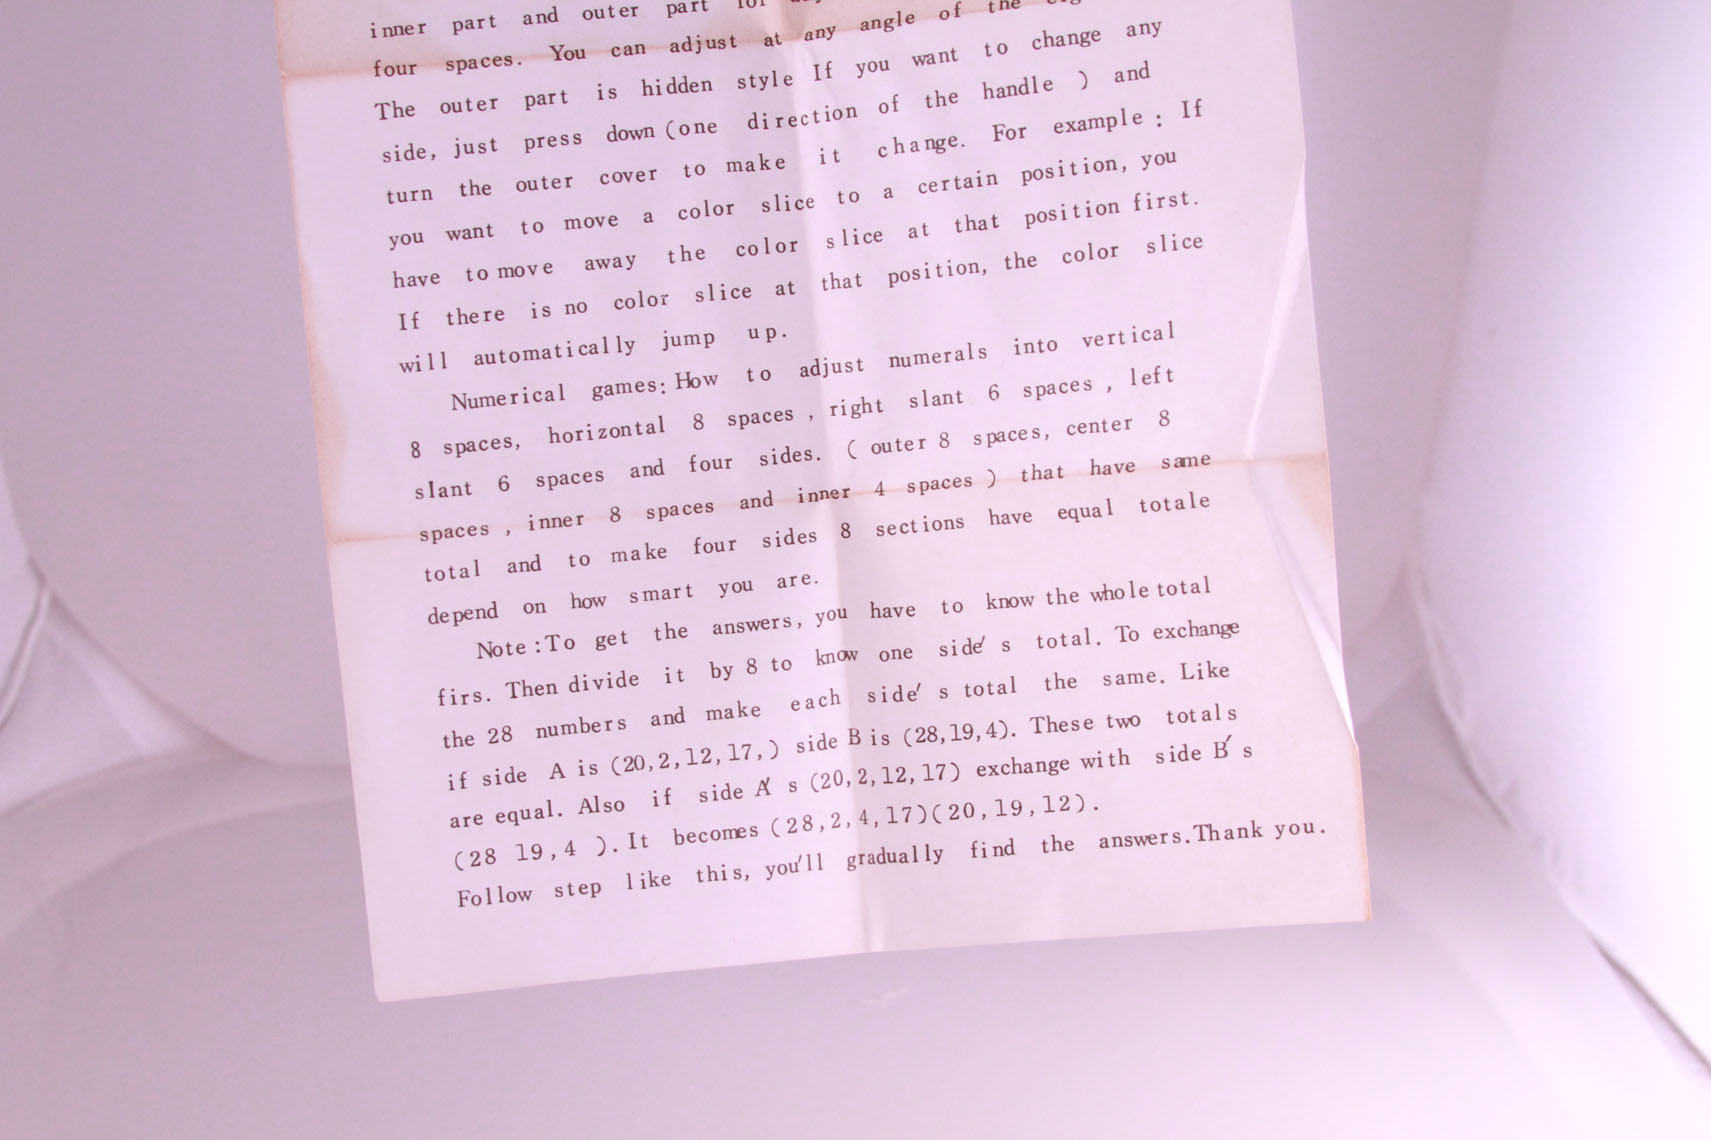 inner part and outer part for
four spaces. You can adjust at any angle of the
The outer part is hidden style If you want to change any
side, just press down (one direction of the handle ) and
turn the outer cover to make it change. For example : If
you want to move a color slice to a certain position, you
have to move away the color slice at that position first.
If there is no color slice at that position, the color slice
will automatically jump up.
Numerical games: How to adjust numerals into vertical
8 spaces, horizontal 8 spaces , right slant 6 spaces , left
slant 6 spaces and four sides. ( outer 8 spaces, center 8
spaces , inner 8 spaces and inner 4 spaces ) that have same
total and to make four sides 8 sections have equal totale
depend on how smart you are.
Note :To get the answers, you have to know the whole total
firs. Then divide it by 8 to know one side's total. To exchange
the 28 numbers and make each side's total the same. Like
if side A is (20,2,12,17,) side B is (28,19,4). These two totals
are equal. Also if side A's (20,2,12,17) exchange with side B's
(28 19,4 ). It becomes (28,2,4,17)(20,19,12).
Follow step like this, you'll gradually find the answers. Thank you.